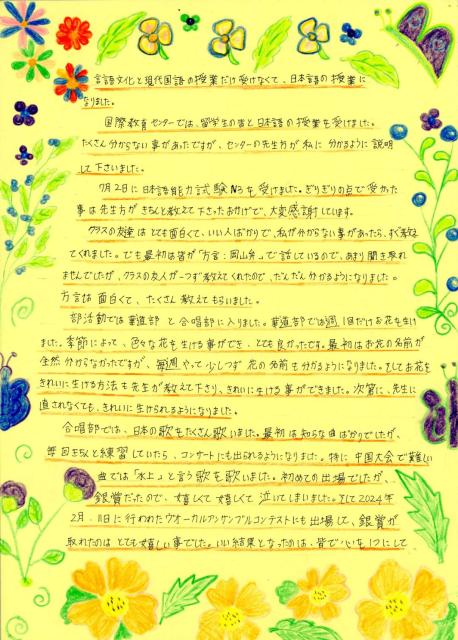 言語文化と現代国語の授業だけ受けなくて、日本語の授業に
なりました。
国際教育センターでは、留学生の皆と日本語の授業を受けました。
たくさん分からない事があったですが、センターの先生方が私に分かるように説明
して下さいました。
7月2日に日本語能力試験N3を受けました。ぎりぎりの点で受かった
事は先生方がきちんと教えて下さったおかげで、大変感謝しています。
クラスの友達はとても面白くて、いい人ばかりで、私が分からない事があったら、すぐ教え
てくれました。でも最初は皆が「方言:岡山弁」で話しているので、あまり聞き取れ
ませんでしたが、クラスの友人が一つずつ教えてくれたので、だんだん分かるようになりました。
方言は面白くて、たくさん教えてもらいました。
部活動では華道部と合唱部に入りました。華道部では週1回だけお花を生け
ました。季節によって、色々な花を生ける事ができ、とても良かったです。最初はお花の名前が
全然分からなかったですが、毎週やって少しずつ花の名前も分かるようになりました。そしてお花を
きれいに生ける方法も先生が教えて下さり、きれいに生ける事ができました。次第に、先生に
直されなくても、きれいに生けられるようになりました。
合唱部では、日本の歌もたくさん歌いました。最初は知らな曲ばかりでしたが、
毎回きちんと練習していたら、コンサートにも出られるようになりました。特に中国大会で難しい
曲では「水上」と言う歌を歌いました。初めての出場でしたが、
銀賞だたので、嬉しくて嬉しくて泣いてしまいました。そして2024年
2月11日に行われたヴオーカルアンサンブルコンテストにも出場して、銀賞が
取れたのはとても嬉しい事でした。いい結果となったのは、皆で心を1つにして